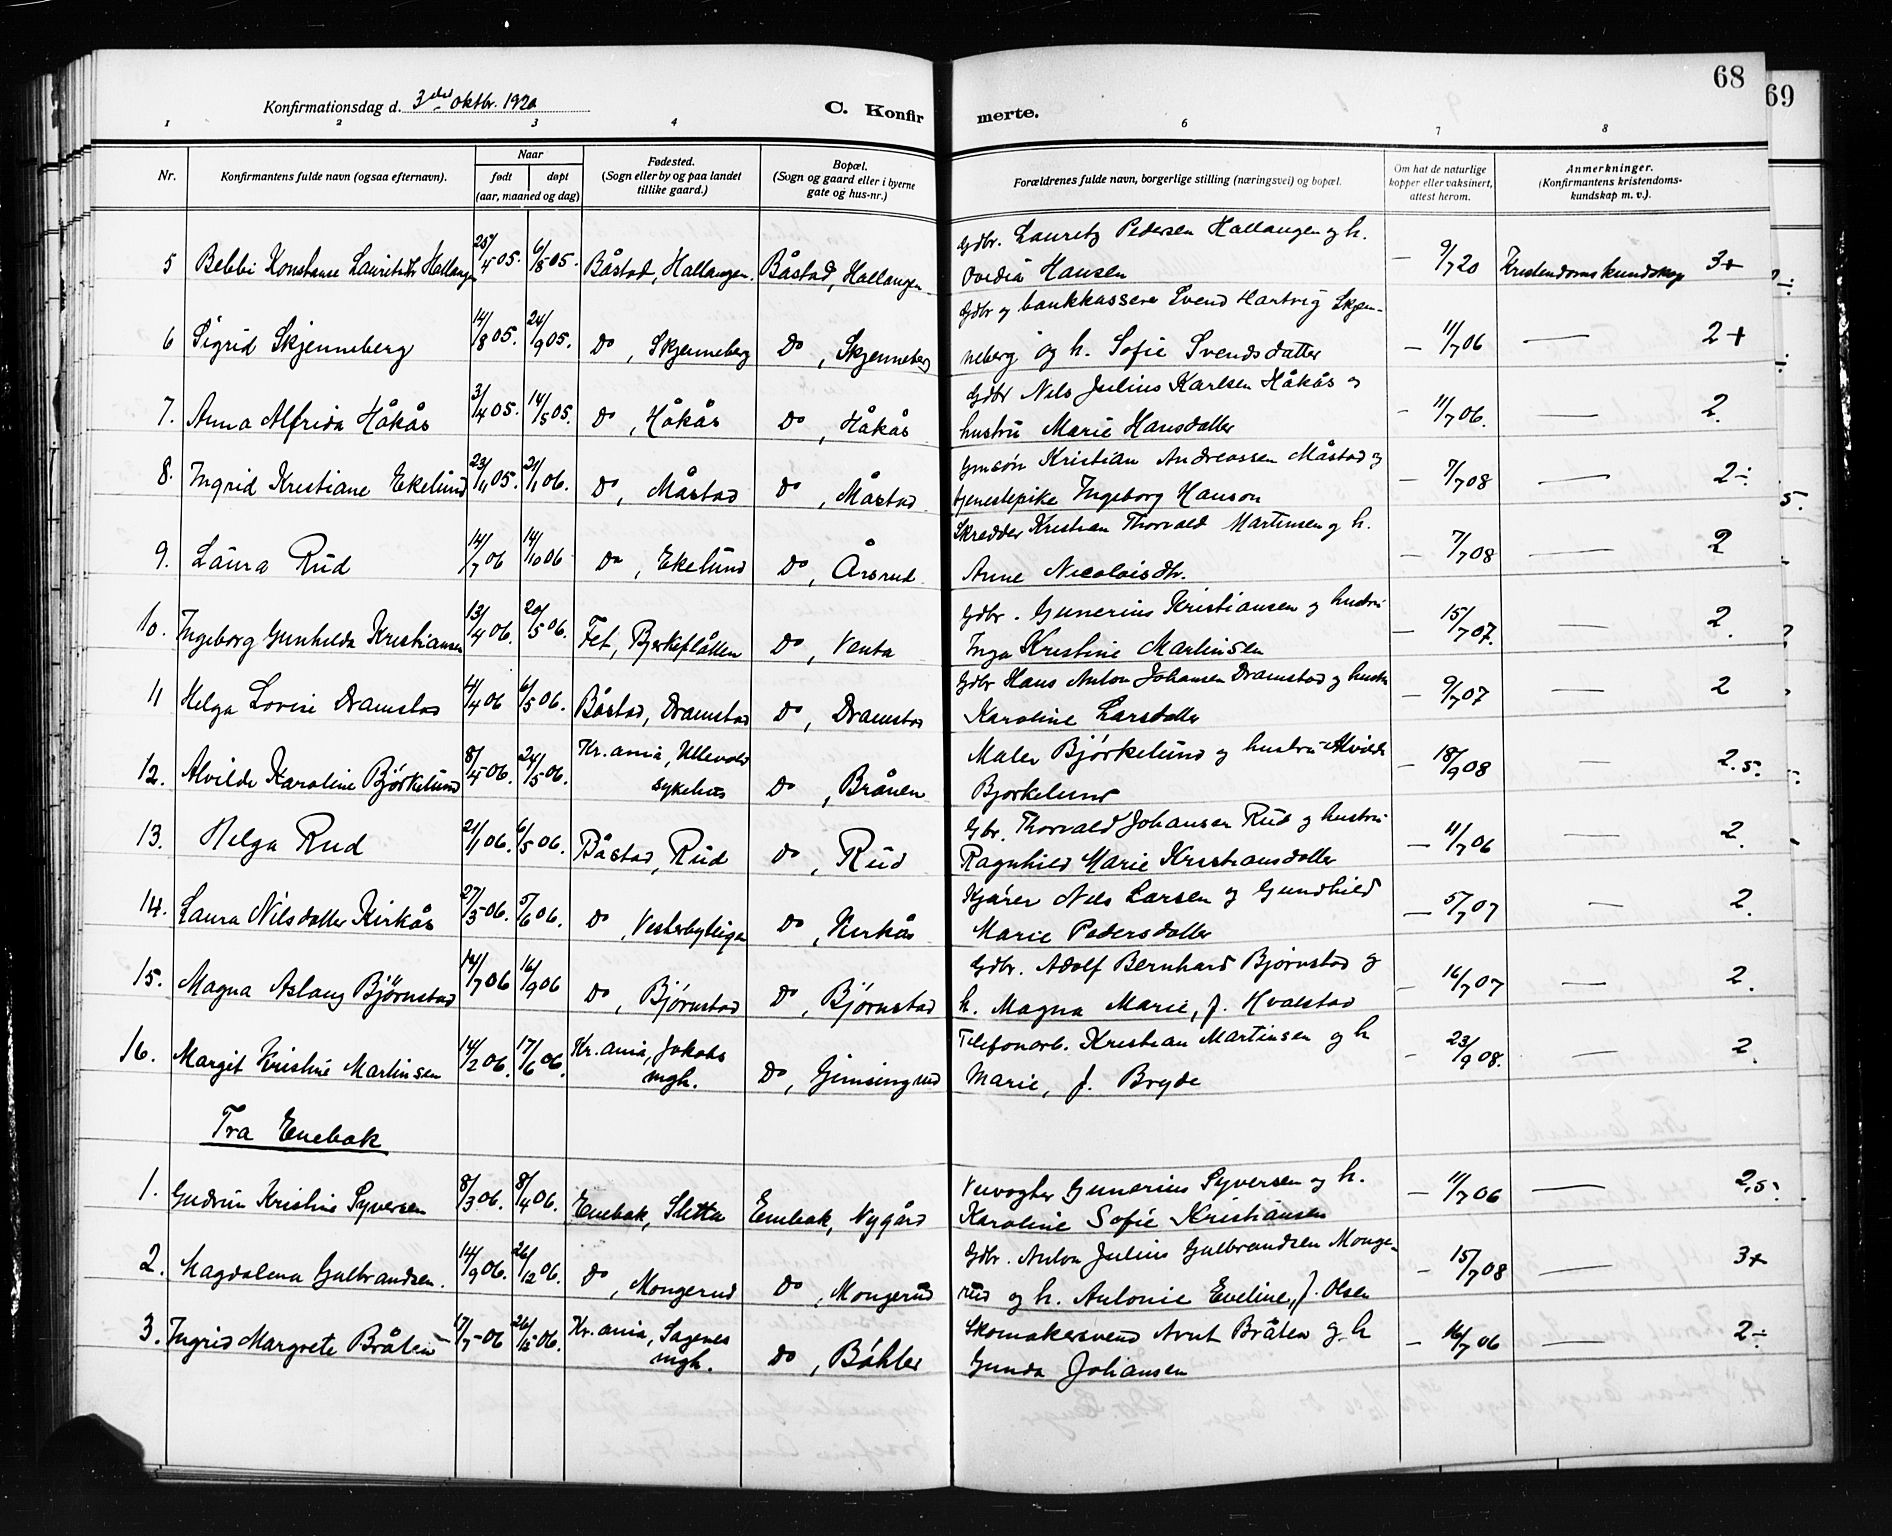 68
69
Konfirmationsdag d. 3die oktbr. 1920
C. Konfirmerte.
1 2 3 4 5 6 7 8
Nr. | Konfirmantens fulde navn (ogsaa efternavn). | Naar født døpt (aar, maaned og dag) | Fødested. (Sogn eller by og paa landet tillike gaard.) | Bopæl. (Sogn og gaard eller i byerne gate og hus-nr.) | Forældrenes fulde navn, borgerlige stilling (næringsvei) og bopæl. | Om hat de naturlige kopper eller vaksinert, attest herom. | Anmerkninger. (Konfirmantens kristendomskundskap m. v.)
5 Bebbi Konstanse Lauritsdtr Hallangen | 25/4 05. | 6/8 05. | Båstad, Hallangen. | Båstad, Hallangen | Gdbr. Lauritz Pedersen Hallangen og h. Ovedia Hansen | — 9/7 20 | Kristendomskundskap 3+
6 Sigrid Skjenneberg | 14/8 05. | 24/9 05. | Do, Skjenneberg | Do, Skjenneberg | Gdbr og bankkasserer Svend Hartvig Skjenneberg og h. Sofie Svendsdatter | — 11/7 06 | — 2+
7. Anna Alfrida Håkås | 3/4 05. | 14/5 05. | Do, Håkås | Do, Håkås | Gdbr Nils Julius Karlsen Håkås og hustru Marie Hansdatter | — 11/7 06. | — 2.
8. Ingrid Kristiane Ekelund | 23/11 05. | 21/1 06. | Do, Måstad | Do, Måstad | Gmsøn Kristian Andreassen Måstad og tjenestepike Ingeborg Hanson | — 7/7 08 | — 2÷
9. Laura Rud | 14/7 06 | 14/10 06 | Do, Ekelund | Do, Årsrud | Skredder Kristian Thorvald Martinsen og h. Anne Nicolaisdtr. | — 7/7 08 | — 2
10. Ingeborg Gunhilda Kristiansen | 13/4 06. | 20/5 06. | Fet, Bjerkeflåtten | Do, Venta | Gdbr. Gunerius Kristiansen og hustru Inga Kristine Martinsen | — 15/7 07. | — 2.
11 Helga Lovise Dramstad | 4/4 06 | 6/5 06. | Båstad, Dramstad | Do, Dramstad | Gdbr Hans Anton Johansen Dramstad og hustru Karoline Larsdatter | — 9/7 07 | — 2
12. Alvilde Karoline Bjørkelund | 8/4 06. | 24/5 06. | Kr.ania, Ullevold sykehus | Do, Brånen | Maler Bjørkelund og hustru Alvilde Bjørkelund | — 18/9 08 | — 2.5.
13. Helga Rud | 21/1 06. | 6/5 06. | Båstad, Rud | Do, Rud | Gbr. Thorvald Johansen Rud og hustru Ragnhild Marie Kristiansdatter | — 11/7 06 | — 2.
14. Laura Nilsdatter Kirkås | 27/3 06. | 5/6 06. | Do, Vesterbyeiga | Do, Kirkås | Kjører Nils Larsen og Gundhild Marie Pedersdatter | — 5/7 07 | — 2.
15. Magna Aslaug Bjørnstad | 14/7 06 | 16/9 06 | Do, Bjørnstad | Do, Bjørnstad | Gdbr. Adolf Bernhard Bjørnstad og h. Magna Marie, f. Hvalstad | — 16/7 07 | — 2.
16. Margit Kristine Martinsen | 14/2 06. | 17/6 06. | Kr.ania, Jakobs mgh. | Do, Gimsingrud | Telefonarb. Kristian Martinsen og h Marie, f. Bryde | — 23/9 08. | — 2.
Fra Enebak
1. Gudrun Kristine Syversen | 8/3 06. | 8/4 06. | Enebak, Sletta | Enebak, Nygård | Veivogter Gunerius Syversen og h. Karoline Sofie Kristiansen | — 11/7 06 | — 2,5.
2. Magdalena Gulbrandsen. | 14/9 06. | 26/12 06. | Do, Mongerud | Do, Mongerud | Gdbr. Anton Julius Gulbrandsen Mongerud og h. Antonie Eveline, f. Olsen | — 15/7 08 | — 3+
3. Ingrid Margrete Bråten | 06 | 06. | Kr.ania, Sagenes mgh. | Do, Böhler | Skomakersvend Arnt Bråten og h Gunda Johansen | — 16/7 06 | — 2÷